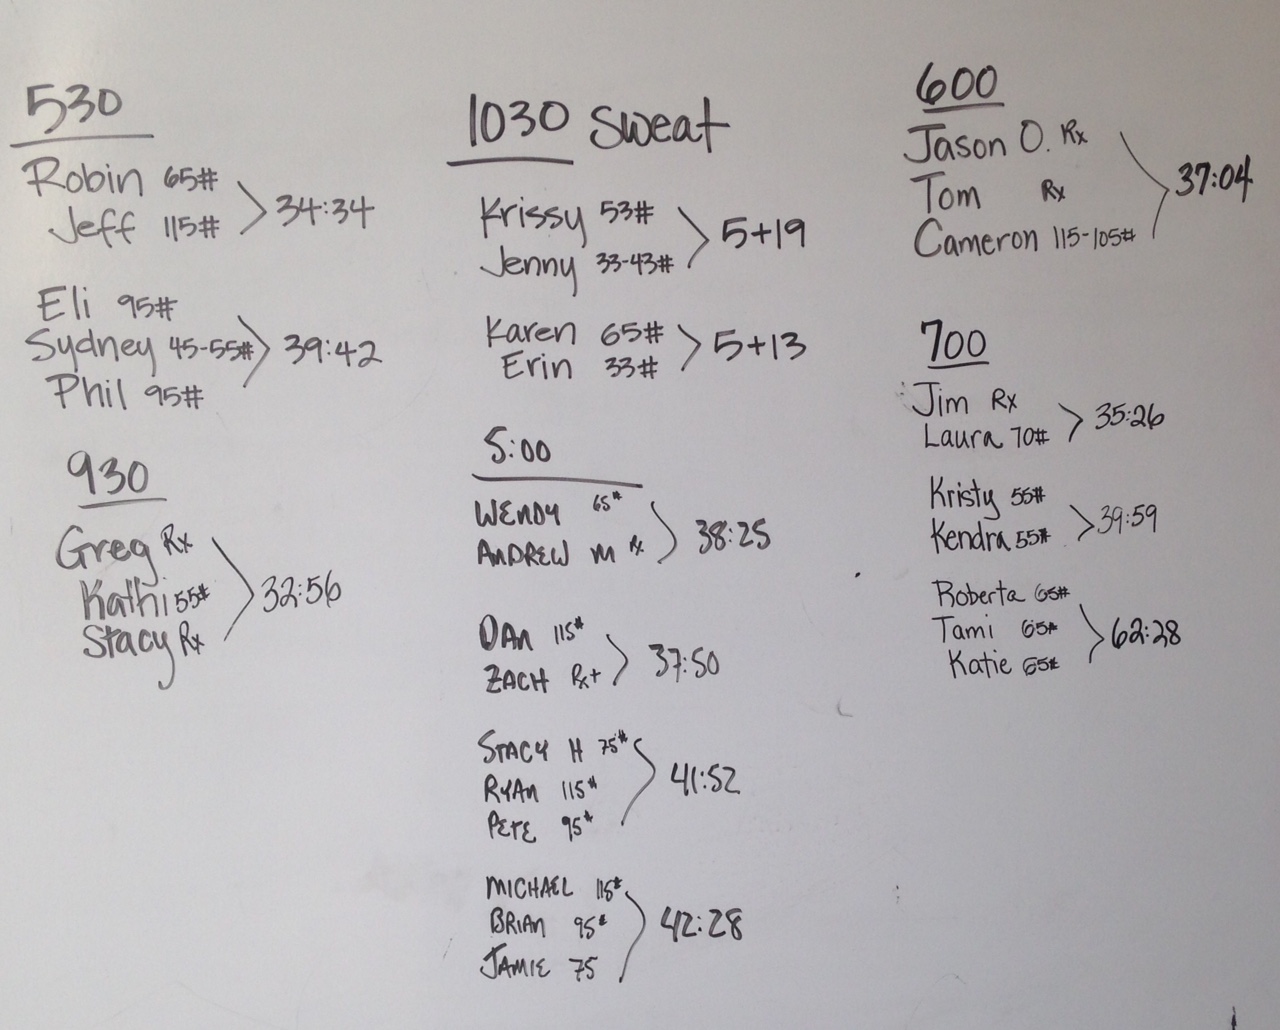 530
Robin 65#
Jeff 115#
34:34
Eli 95#
Sydney 45-55#
Phil 95#
39:42
930
Greg Rx
Kathi 55#
Stacy Rx
32:56
1030 Sweat
Krissy 53#
Jenny 33-43#
5+19
Karen 65#
Erin 33#
5+13
5:00
WENDY 65#
ANDREW M Rx
38:25
DAN 115#
ZACH Rx+
37:50
STACY H 75#
RYAN 115#
PETE 95#
41:52
MICHAEL 115#
BRIAN 95#
JAMIE 75
42:28
600
Jason O. Rx
Tom Rx
Cameron 115-105#
37:04
700
Jim Rx
Laura 70#
35:26
Kristy 55#
Kendra 55#
39:59
Roberta 65#
Tami 65#
Katie 65#
62:28